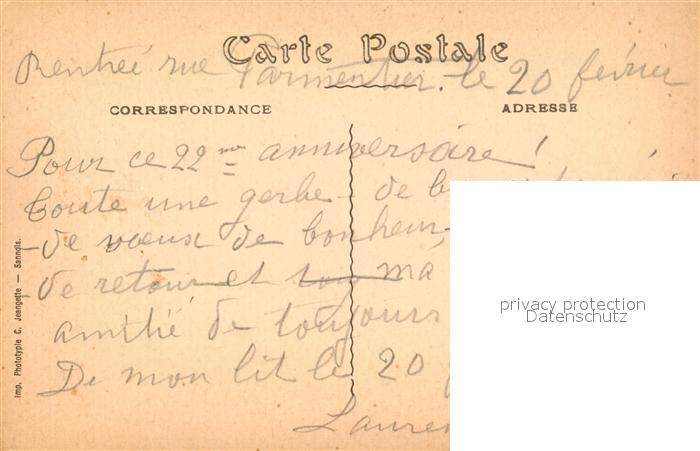 Carte Postale
Rentrée rue Parmentier. le 20 février
CORRESPONDANCE
ADRESSE
Pour ce 22me anniversaire!
toute une gerbe de
- de vœux de bonheur
de retour et ma
amitié de toujours
De mon lit le 20
Lauren
Imp. Phototypie C. Jeangette — Sannois.
privacy protection
Datenschutz